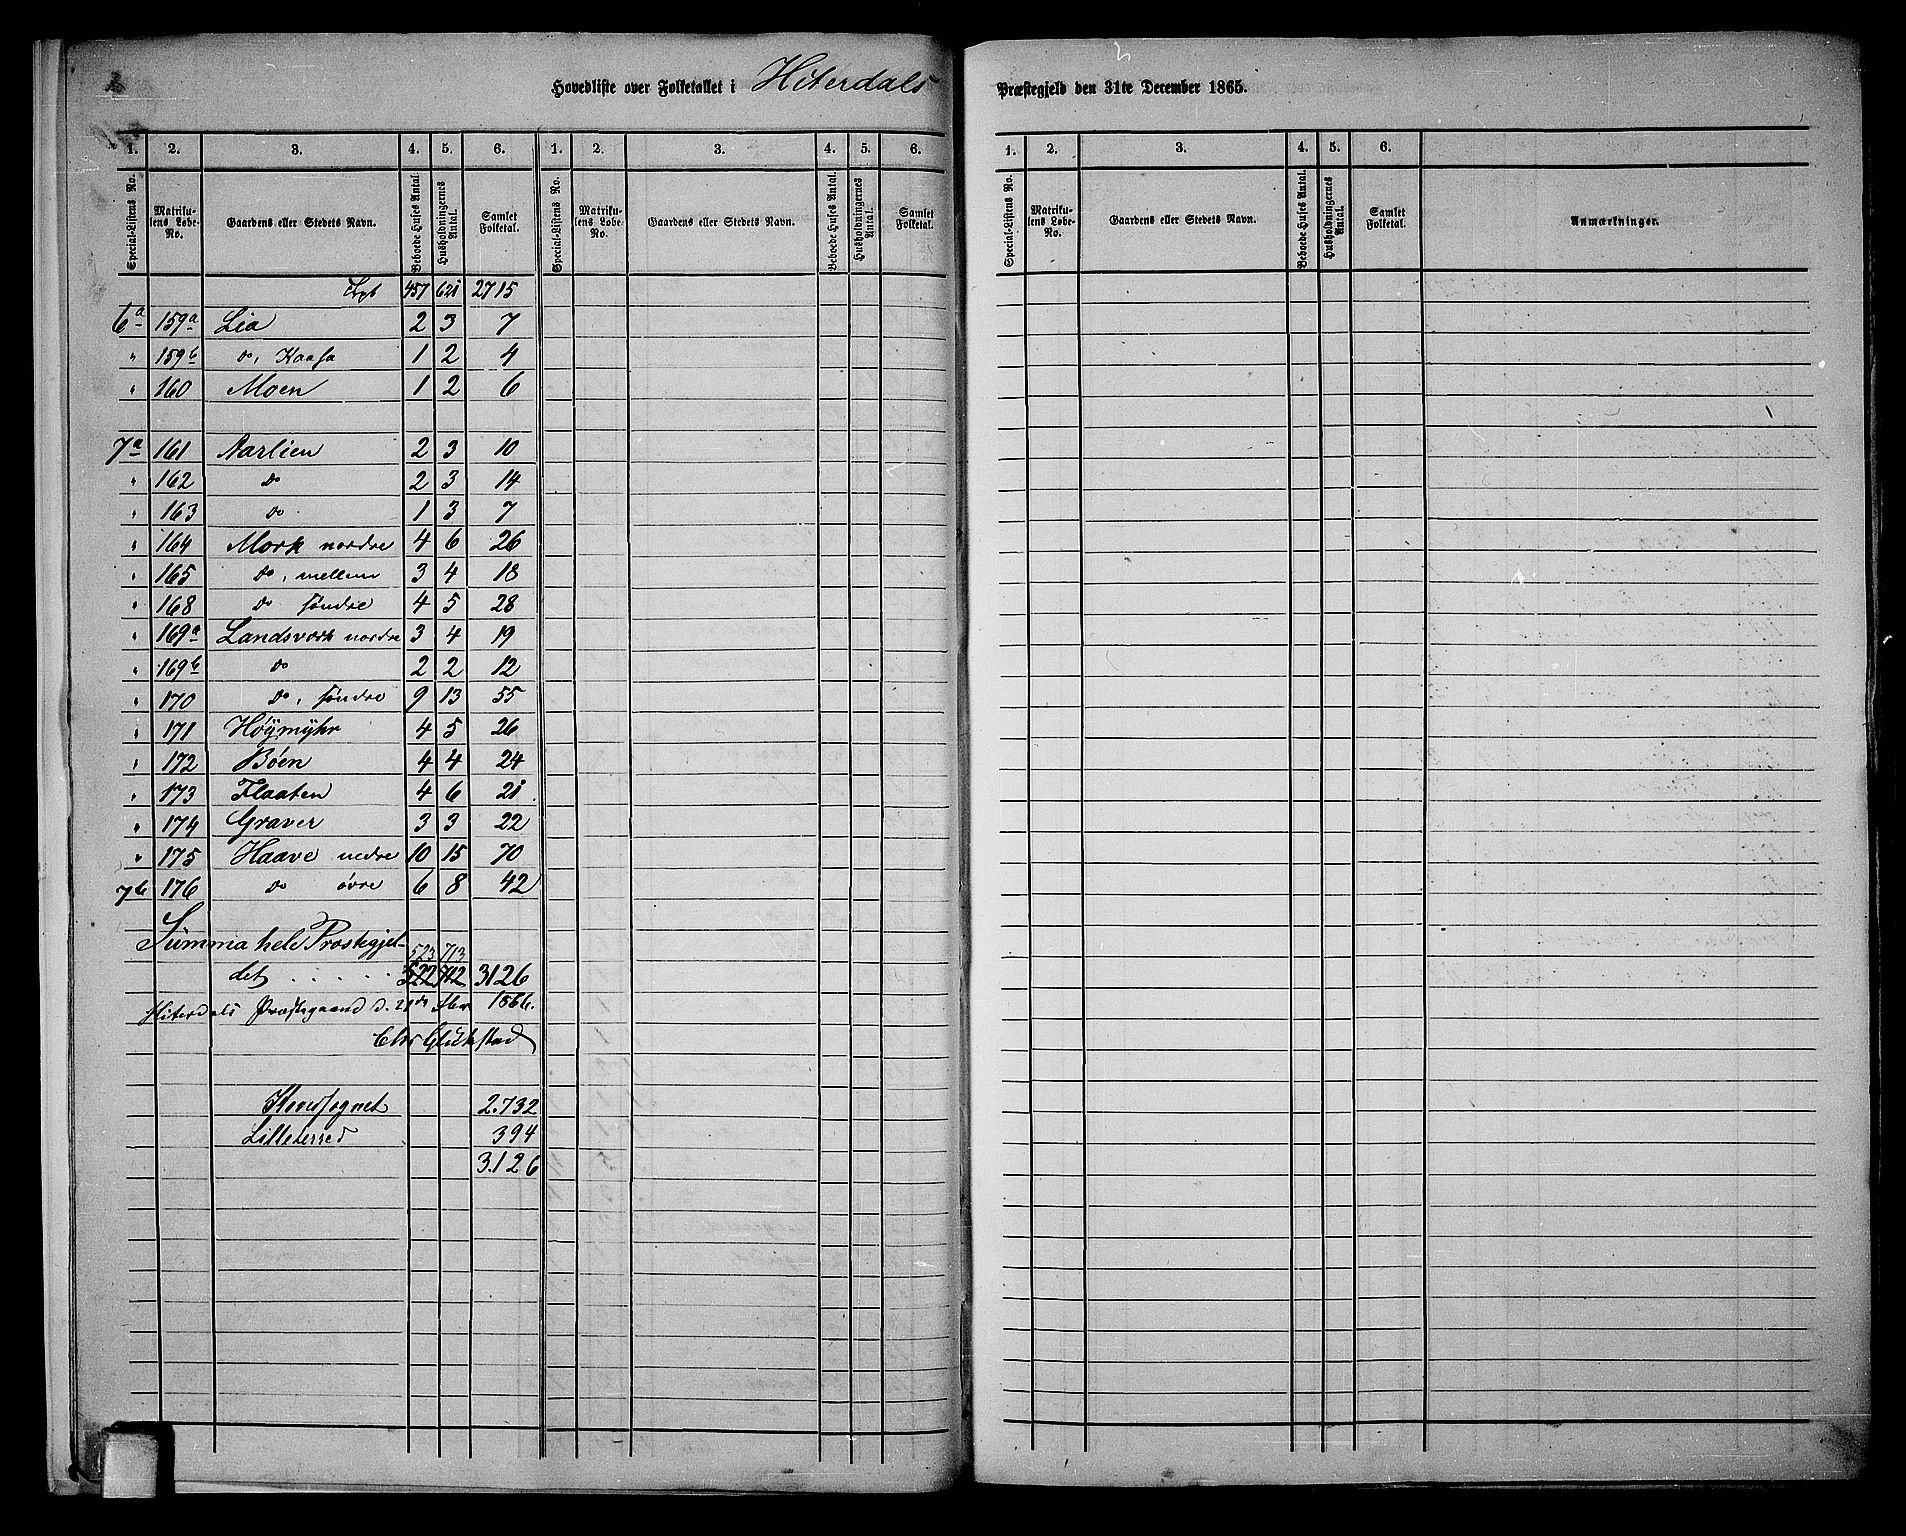 Hovedliste over Folketallet i Hiterdals Præstegjeld den 31te December 1865.
1. 2. 3. 4. 5. 6. 1. 2. 3. 4. 5. 6. 1. 2. 3. 4. 5. 6.
Special-Listens No. Matrikulens Løbe-No. Gaardens eller Stedets Navn. Beboede Huses Antal. Husholdningernes Antal. Samlet Folketal. Special-Listens No. Matrikulens Løbe-No. Gaardens eller Stedets Navn. Beboede Huses Antal. Husholdningernes Antal. Samlet Folketal. Special-Listens No. Matrikulens Løbe-No. Gaardens eller Stedets Navn. Beboede Huses Antal. Husholdningernes Antal. Samlet Folketal. Anmærkninger.
457 621 2715
6a 159a Lia 2 3 7
" 159b do, Kaasa 1 2 4
" 160 Moen 1 2 6
7a 161 Aarlien 2 3 10
" 162 do 2 3 14
" 163 do 1 3 7
" 164 Mork nordre 4 6 26
" 165 do, mellem 3 4 18
" 168 do søndre 4 5 28
" 169a Landsverk nordre 3 4 19
" 169b do 2 2 12
" 170 do, søndre 9 13 55
" 171 Höymÿhr 4 5 26
" 172 Böen 4 4 24
" 173 Flaaten 4 6 21
" 174 Graver 3 3 22
" 175 Haave nedre 10 15 70
7b 176 do övre 6 8 42
Summa hele Præstegjel- 523 713
det . . . . . 522 712 3126
Hiterdals Præstegaard d. 21de 1866.
Glückstad
Hovedsognet 2.732
Lilleherred 394
3.126